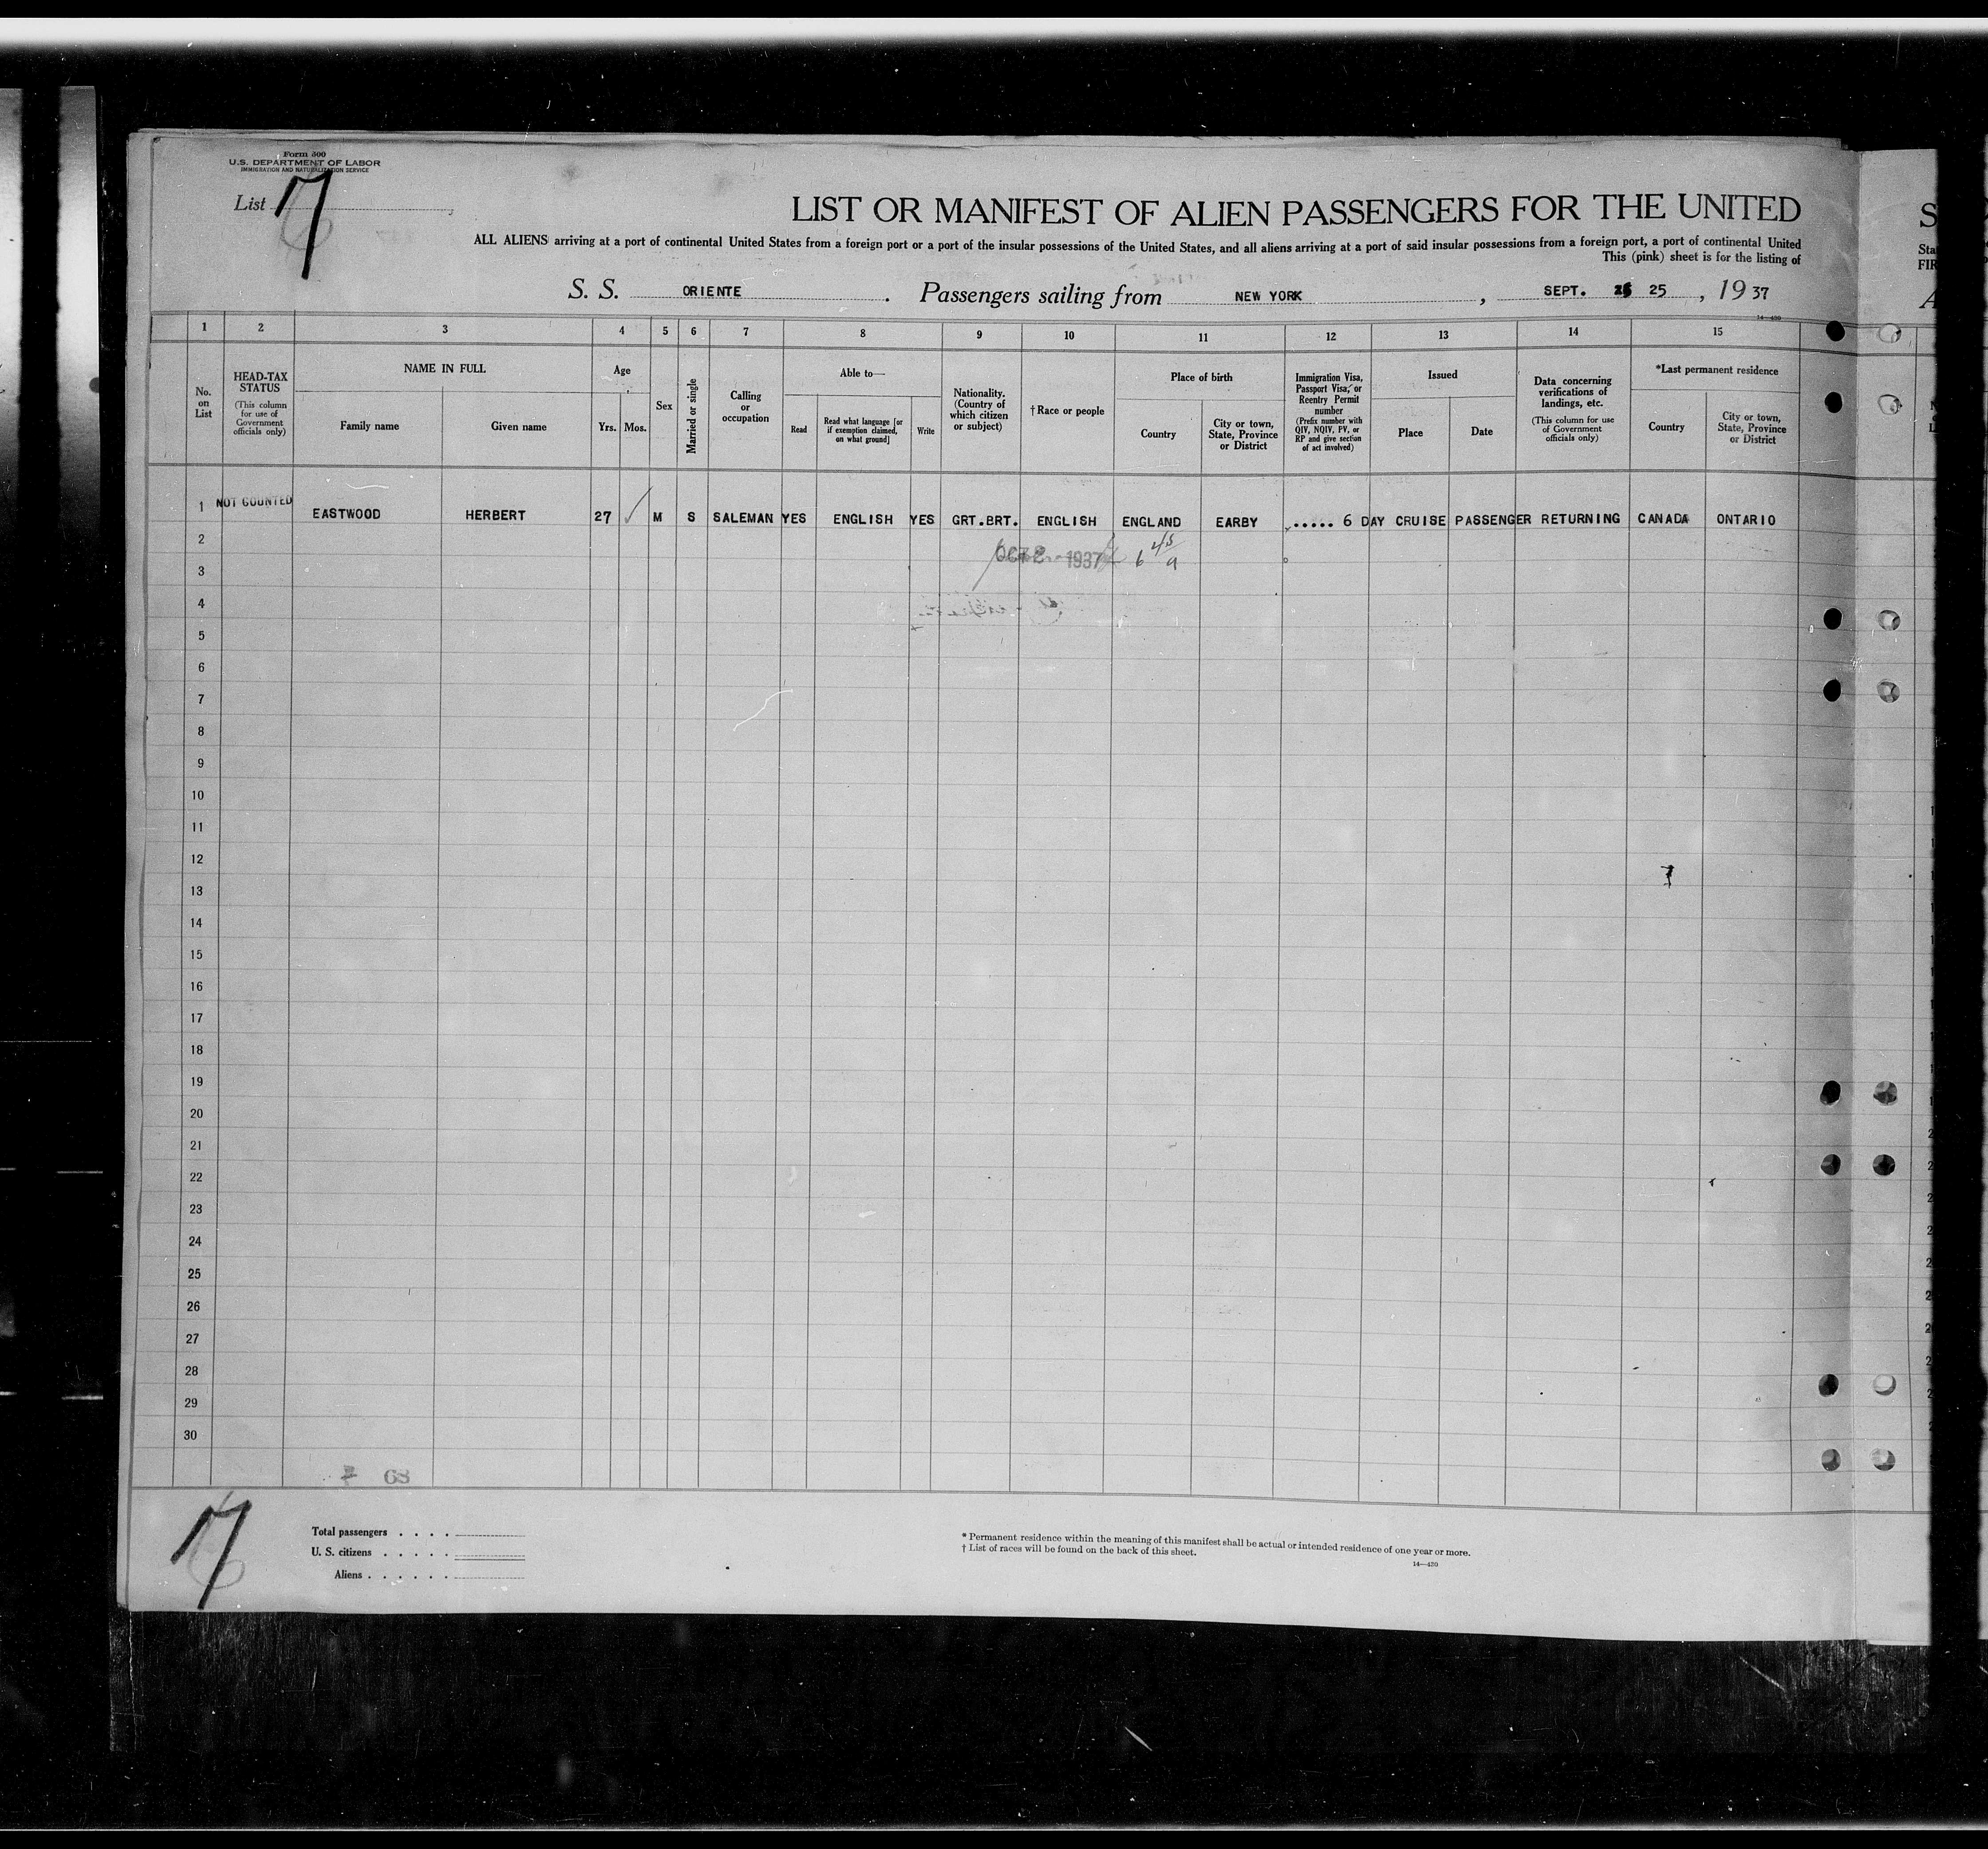 Form 500
U.S. DEPARTMENT OF LABOR
IMMIGRATION AND NATURALIZATION SERVICE
List 7
LIST OR MANIFEST OF ALIEN PASSENGERS FOR THE UNITED
ALL ALIENS arriving at a port of continental United States from a foreign port or a port of the insular possessions of the United States, and all aliens arriving at a port of said insular possessions from a foreign port, a port of continental United
This (pink) sheet is for the listing of
S. S. ORIENTE. Passengers sailing from NEW YORK, SEPT. 25, 1937
14—430
1 2 3 4 5 6 7 8 9 10 11 12 13 14 15
No. on List
HEAD-TAX STATUS
(This column for use of Government officials only)
NAME IN FULL
Family name
Given name
Age
Yrs. Mos.
Sex
Married or single
Calling or occupation
Able to—
Read
Read what language [or if exemption claimed, on what ground]
Write
Nationality. (Country of which citizen or subject)
†Race or people
Place of birth
Country
City or town, State, Province or District
Immigration Visa, Passport Visa, or Reentry Permit number
(Prefix number with QIV, NQIV, PV, or RP and give section of act involved)
Issued
Place
Date
Data concerning verifications of landings, etc.
(This column for use of Government officials only)
*Last permanent residence
Country
City or town, State, Province or District
1 NOT COUNTED EASTWOOD HERBERT 27 M S SALEMAN YES ENGLISH YES GRT.BRT. ENGLISH ENGLAND EARBY ..... 6 DAY CRUISE PASSENGER RETURNING CANADA ONTARIO
2
OCT 2 - 1937
3
4
5
6
7
8
9
10
11
12
13
14
15
16
17
18
19
20
21
22
23
24
25
26
27
28
29
30
68
7
Total passengers . . . .
U. S. citizens . . . . .
Aliens . . . . . .
* Permanent residence within the meaning of this manifest shall be actual or intended residence of one year or more.
† List of races will be found on the back of this sheet.
14—430